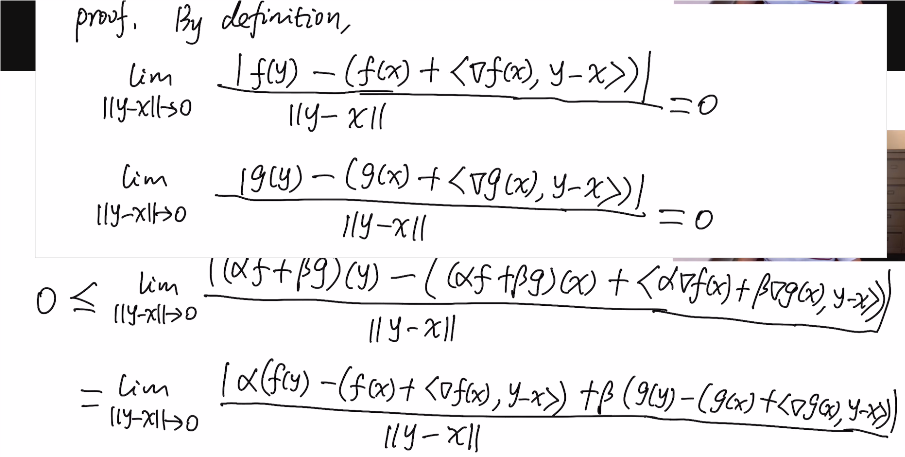 proof. By definition,
lim_{||y-x||→0} |f(y) - (f(x) + <∇f(x), y-x>)| / ||y-x|| = 0
lim_{||y-x||→0} |g(y) - (g(x) + <∇g(x), y-x>)| / ||y-x|| = 0
0 ≤ lim_{||y-x||→0} |(αf+βg)(y) - ((αf+βg)(x) + <α∇f(x)+β∇g(x), y-x>)| / ||y-x||
= lim_{||y-x||→0} |α(f(y) - (f(x) + <∇f(x), y-x>) + β(g(y) - (g(x) + <∇g(x), y-x>)| / ||y-x||